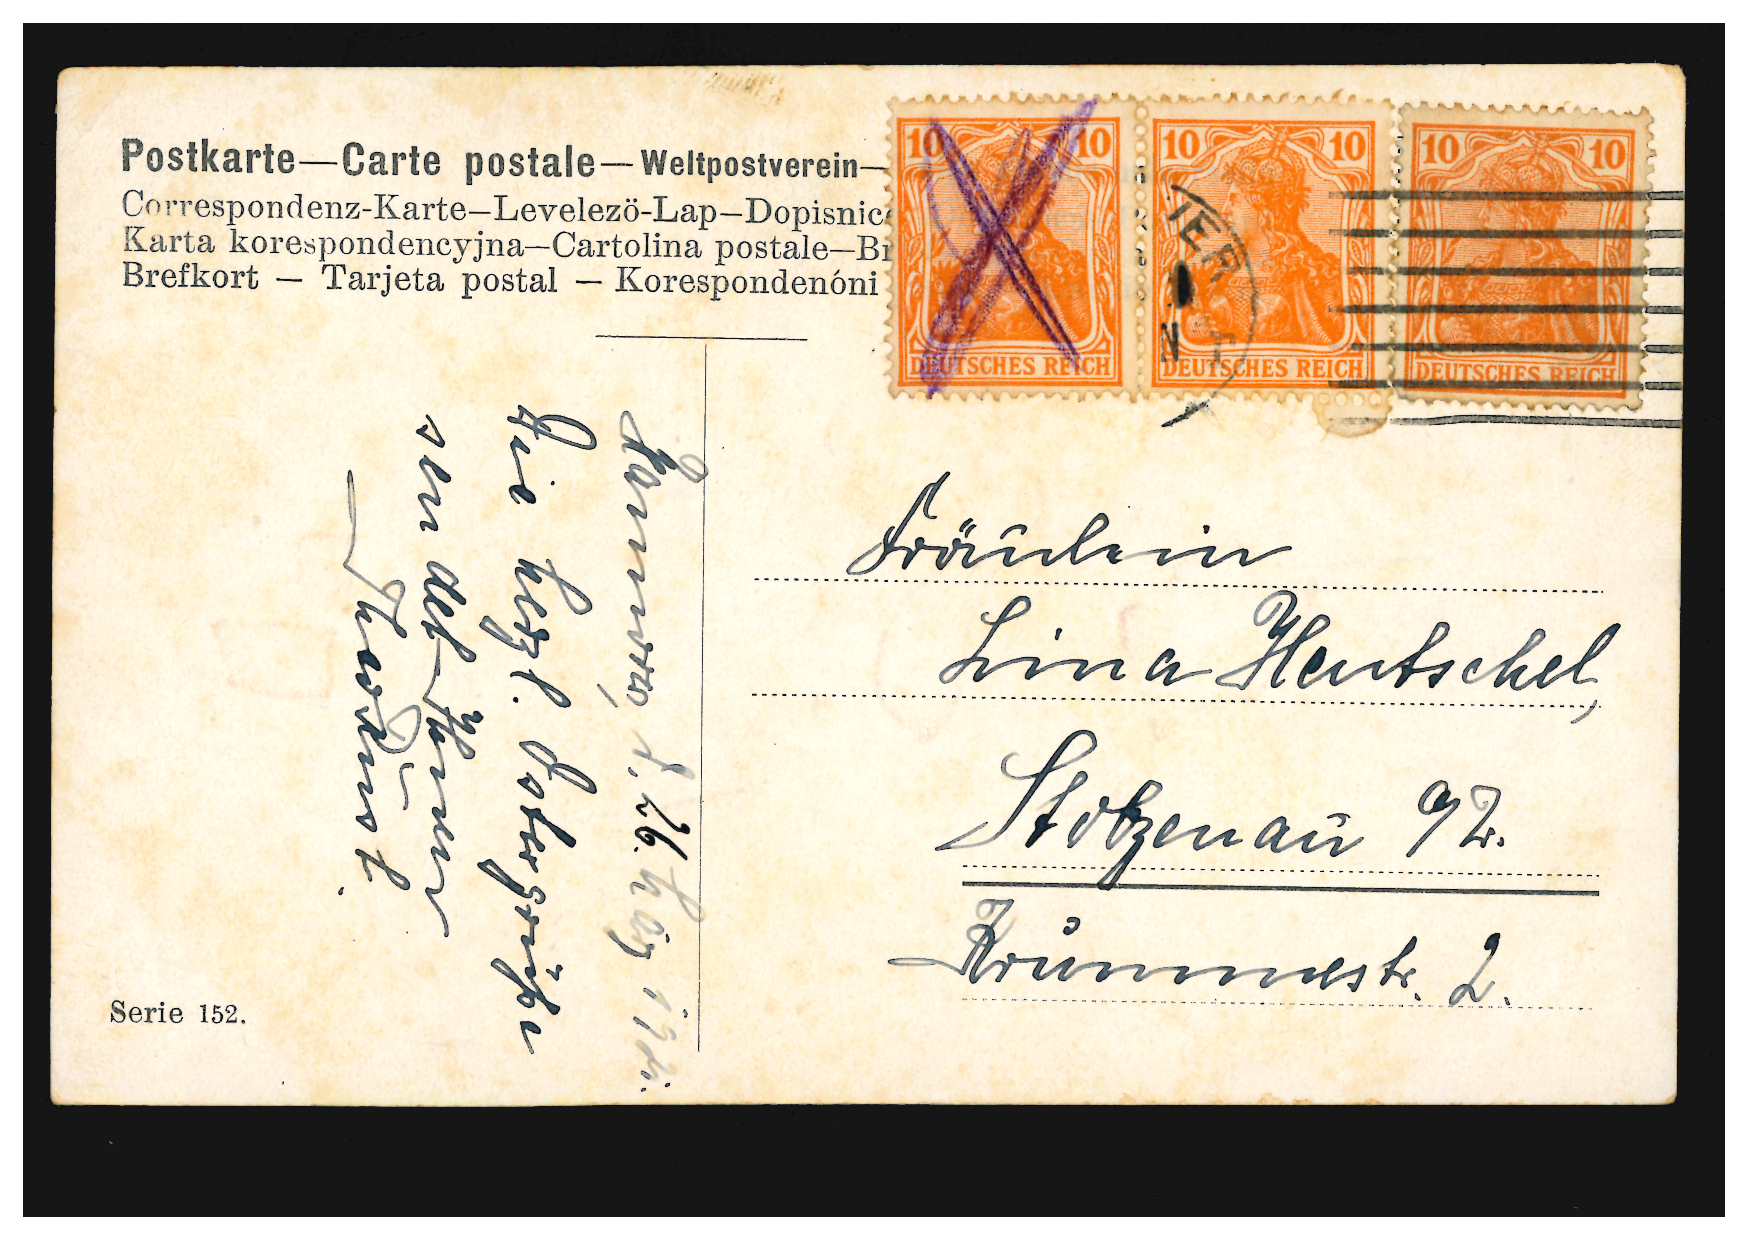 Postkarte—Carte postale—Weltpostverein—
Correspondenz-Karte—Levelezö-Lap—Dopisnic
Karta korespondencyjna—Cartolina postale—Br
Brefkort — Tarjeta postal — Korespondenóni
10 10
DEUTSCHES REICH
10 10
DEUTSCHES REICH
10 10
DEUTSCHES REICH
TER
Fräulein
Lina Hentschel,
Stolzenau a/W.
Krummestr. 2.
Hannover, d. 26. März 1921.
Die herzl. Ostergrüße
sen
Serie 152.